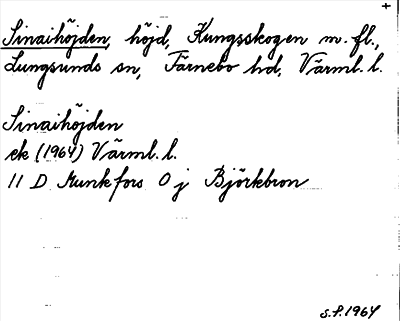 +
Sinaihöjden, höjd, Kungsskogen m. fl.,
Lungsunds sn, Färnebo hd, Värml. l.
Sinaihöjden
ek (1964) Värml. l.
11 D Munkfors 0 j Björkbron
S.F. 1964